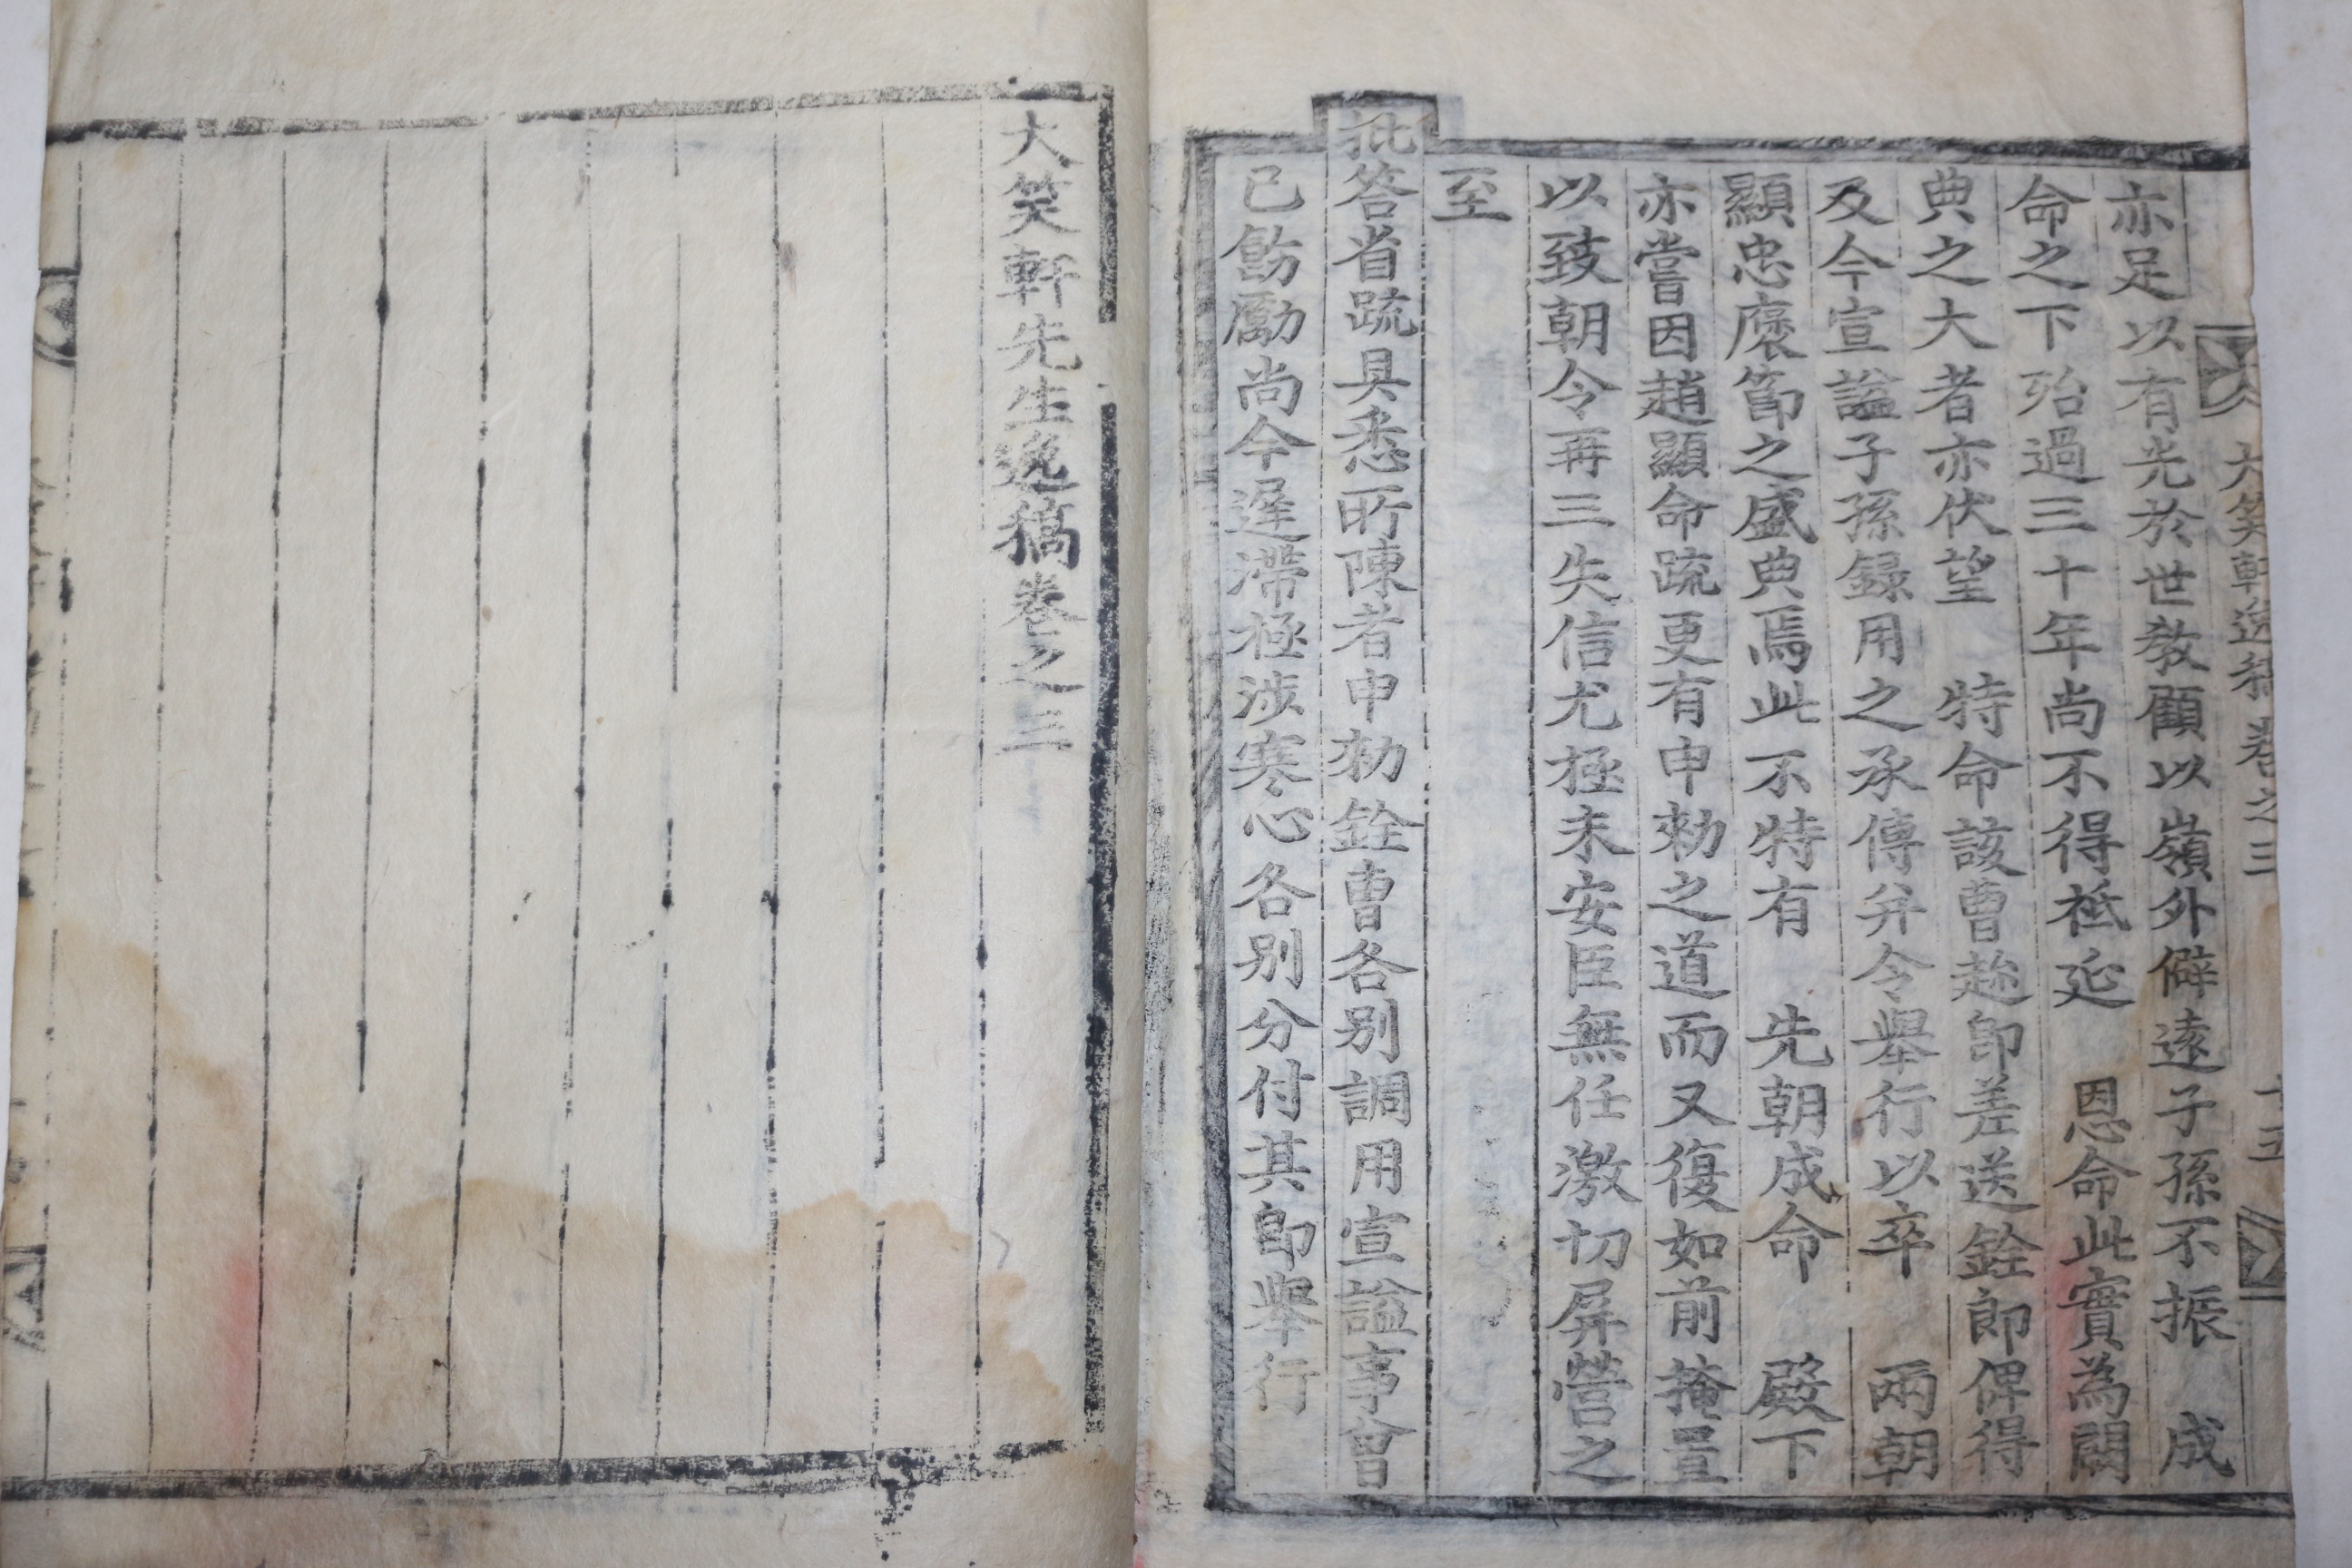 大笑軒逸稿 卷之三 十五
亦足以有光於世敎顧以嶺外僻遠子孫不振 成
命之下殆過三十年尚不得祗延 恩命此實為闕
典之大者亦伏望 特命該曹趂卽差送銓郎俾得
及今宣謚子孫錄用之承傳并令舉行以卒 兩朝
顯忠褒節之盛典焉此不特有 先朝成命 殿下
亦嘗因趙顯命疏更有申勑之道而又復如前掩置
以致朝令再三失信尤極未安臣無任激切屏營之
至
批答省疏具悉所陳者申勑銓曹各别調用宣謚事曾
已飭勵尚今遲滯極涉寒心各别分付其卽舉行
大笑軒先生逸稿卷之三